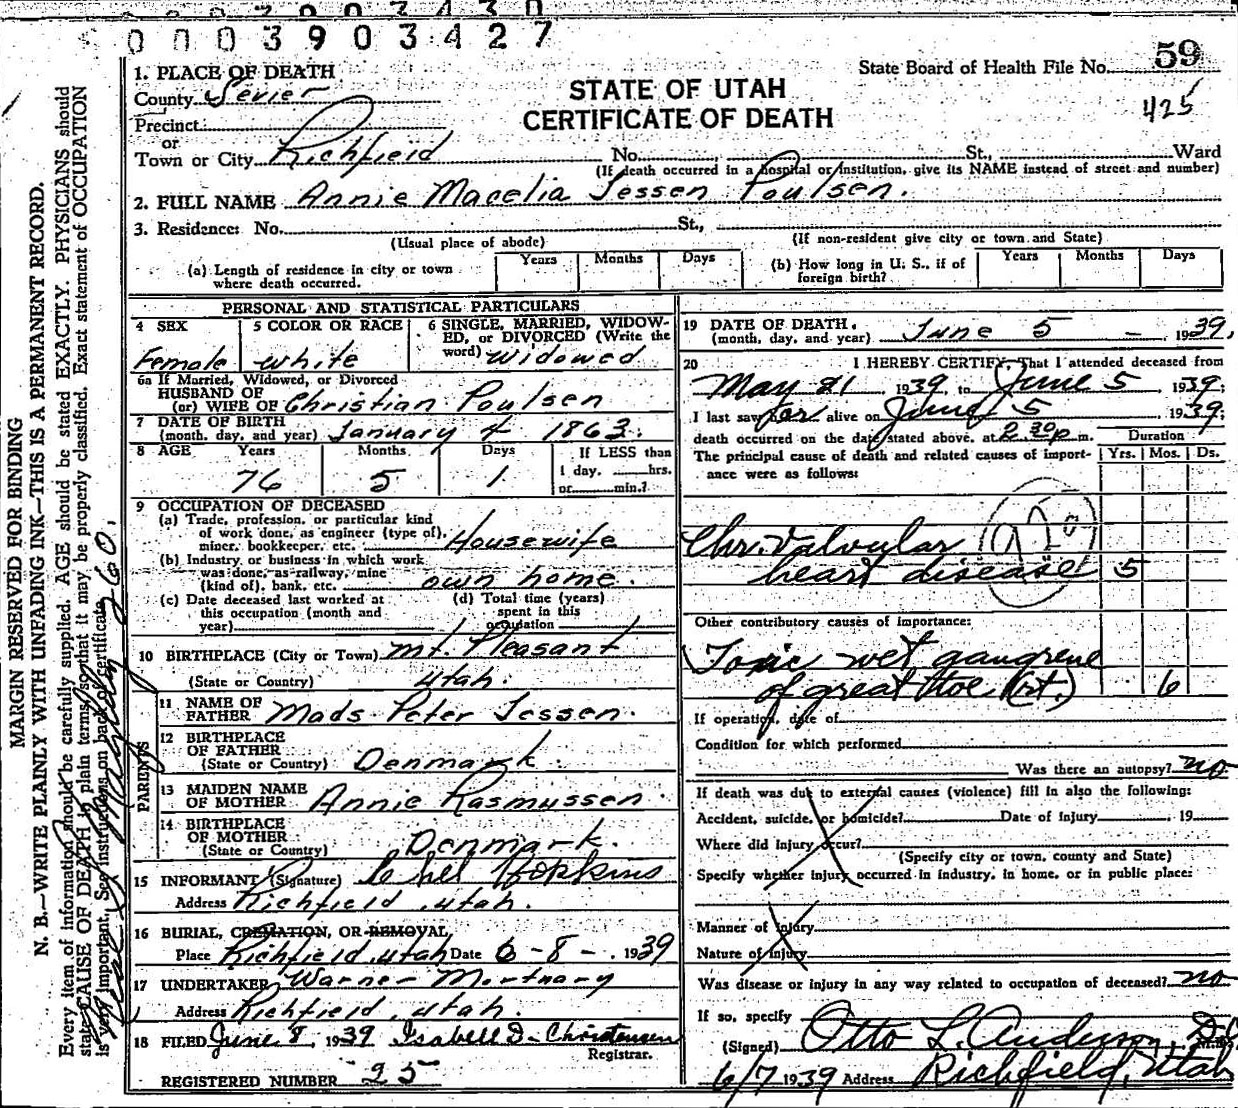 0003903430
0003903427
State Board of Health File No. 59
425
STATE OF UTAH
CERTIFICATE OF DEATH
1. PLACE OF DEATH
County Sevier
Precinct
or
Town or City Richfield No. St., Ward
(If death occurred in a hospital or institution, give its NAME instead of street and number)
2. FULL NAME Annie Macelia Jessen Poulsen.
3. Residence: No. St.,
(Usual place of abode) (If non-resident give city or town and State)
(a) Length of residence in city or town where death occurred. Years Months Days
(b) How long in U. S., if of foreign birth? Years Months Days
PERSONAL AND STATISTICAL PARTICULARS
4 SEX Female
5 COLOR OR RACE white
6 SINGLE, MARRIED, WIDOWED, or DIVORCED (Write the word) widowed
6a If Married, Widowed, or Divorced
HUSBAND OF
(or) WIFE OF Christian Poulsen
7 DATE OF BIRTH
(month, day, and year) January 4 1863.
8 AGE Years 76 Months 5 Days 1 If LESS than 1 day, hrs. or min.?
9 OCCUPATION OF DECEASED
(a) Trade, profession, or particular kind
of work done, as engineer (type of),
miner, bookkeeper, etc. Housewife
(b) Industry or business in which work
was done, as railway, mine
(kind of), bank, etc. own home.
(c) Date deceased last worked at
this occupation (month and
year)
(d) Total time (years)
spent in this
occupation
10 BIRTHPLACE (City or Town) Mt. Pleasant
(State or Country) Utah.
PARENTS
11 NAME OF
FATHER Mads Peter Jessen.
12 BIRTHPLACE
OF FATHER
(State or Country) Denmark.
13 MAIDEN NAME
OF MOTHER Annie Rasmussen.
14 BIRTHPLACE
OF MOTHER
(State or Country) Denmark.
15 INFORMANT (Signature) Hopkins
Address Richfield, Utah.
16 BURIAL, CREMATION, OR REMOVAL,
Place Richfield, Utah Date 6-8-. 1939
17 UNDERTAKER Warner Mortuary
Address Richfield, Utah.
18 FILED June 8, 1939 Isabell D. Christensen
Registrar.
REGISTERED NUMBER 25
19 DATE OF DEATH.
(month, day, and year) June 5 - 1939,
20 I HEREBY CERTIFY, That I attended deceased from
May 21 1939, to June 5 1939;
I last saw her alive on June 5 1939;
death occurred on the date stated above, at 2:30 p m.
The principal cause of death and related causes of importance were as follows:
Duration
Yrs. Mos. Ds.
Chr. Valvular
heart disease 5
Other contributory causes of importance:
Toxic wet gangrene
of great toe (rt.) 6
If operation, date of
Condition for which performed
Was there an autopsy? no
If death was due to external causes (violence) fill in also the following:
Accident, suicide, or homicide? Date of injury , 19
Where did injury occur?
(Specify city or town, county and State)
Specify whether injury occurred in industry, in home, or in public place:
Manner of injury
Nature of injury
Was disease or injury in any way related to occupation of deceased? no
If so, specify
(Signed) Otto L. Anderson,
6/7 1939 Address Richfield, Utah
MARGIN RESERVED FOR BINDING
N. B.—WRITE PLAINLY WITH UNFADING INK—THIS IS A PERMANENT RECORD.
Every item of information should be carefully supplied. AGE should be stated EXACTLY. PHYSICIANS should
state CAUSE OF DEATH in plain terms, so that it may be properly classified. Exact statement of OCCUPATION
is very important. See instructions on back of certificate.